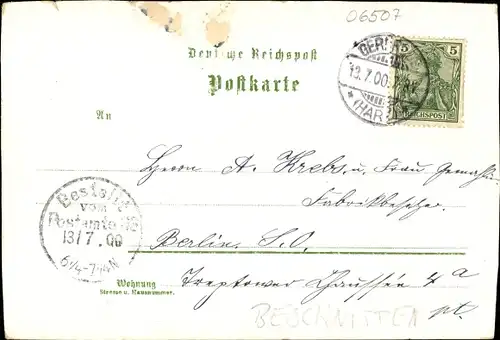 06507
Deutsche Reichspost
Postkarte
5 5
13.7.00.
(HAR
REICHSPOST
An
Herrn A. Krebs u. Frau Gemahlin
Fabrikbesitzer
Berlin, S.O.
Treptower Chaussée 4a
pt.
Bestellt
vom
Postamte
13/7.00
6¼-7¼N
Wohnung
Strasse u. Hausnummer.
BESCHNITTEN